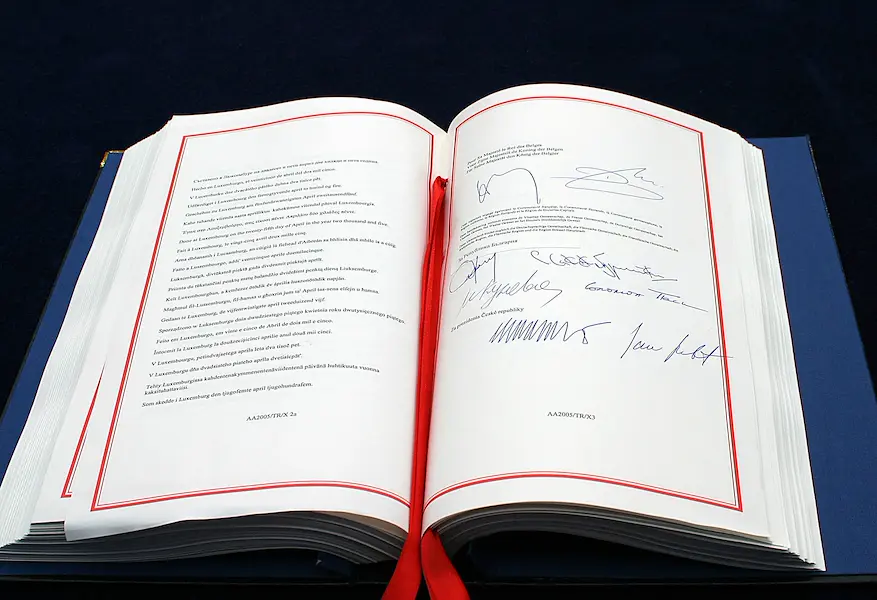 Съставено в Люксембург на двадесет и пети април две хиляди и пета година.
Hecho en Luxemburgo, el veinticinco de abril del dos mil cinco.
V Lucemburku dne dvacátého pátého dubna dva tisíce pět.
Udfærdiget i Luxembourg den femogtyvende april to tusind og fem.
Geschehen zu Luxemburg am fünfundzwanzigsten April zweitausendfünf.
Kahe tuhande viienda aasta aprillikuu kahekümne viiendal päeval Luxembourgis.
Έγινε στο Λουξεμβούργο, στις είκοσι πέντε Απριλίου δύο χιλιάδες πέντε.
Done at Luxembourg on the twenty-fifth day of April in the year two thousand and five.
Fait à Luxembourg, le vingt-cinq avril deux mille cinq.
Arna dhéanamh i Lucsamburg, an cúigiú lá fichead d'Aibreán sa bhliain dhá mhíle is a cúig.
Fatto a Lussemburgo, addi' venticinque aprile duemilacinque.
Luksemburgā, divtūkstoš piektā gada divdesmit piektajā aprīlī.
Priimta du tūkstančiai penktų metų balandžio dvidešimt penktą dieną Liuksemburge.
Kelt Luxembourgban, a kettőezer ötödik év április huszonötödik napján.
Magħmul fil-Lussemburgu, fil-ħamsa u għoxrin jum ta' April tas-sena elfejn u ħamsa.
Gedaan te Luxemburg, de vijfentwintigste april tweeduizend vijf.
Sporządzono w Luksemburgu dnia dwudziestego piątego kwietnia roku dwutysięcznego piątego.
Feito em Luxemburgo, em vinte e cinco de Abril de dois mil e cinco.
Întocmit la Luxemburg la douăzecişicinci aprilie anul două mii cinci.
V Luxembourgu, petindvajsetega aprila leta dva tisoč pet.
V Luxemburgu dňa dvadsiateho piateho apríla dvetisícpäť.
Tehty Luxemburgissa kahdentenakymmenentenäviidentenä päivänä huhtikuuta vuonna
kaksituhattaviisi.
Som skedde i Luxemburg den tjugofemte april tjugohundrafem.
AA2005/TR/X 2a
Pour Sa Majesté le Roi des Belges
Voor Zijne Majesteit de Koning der Belgen
Für Seine Majestät den König der Belgier
За Република България
Za prezidenta České republiky
AA2005/TR/X3